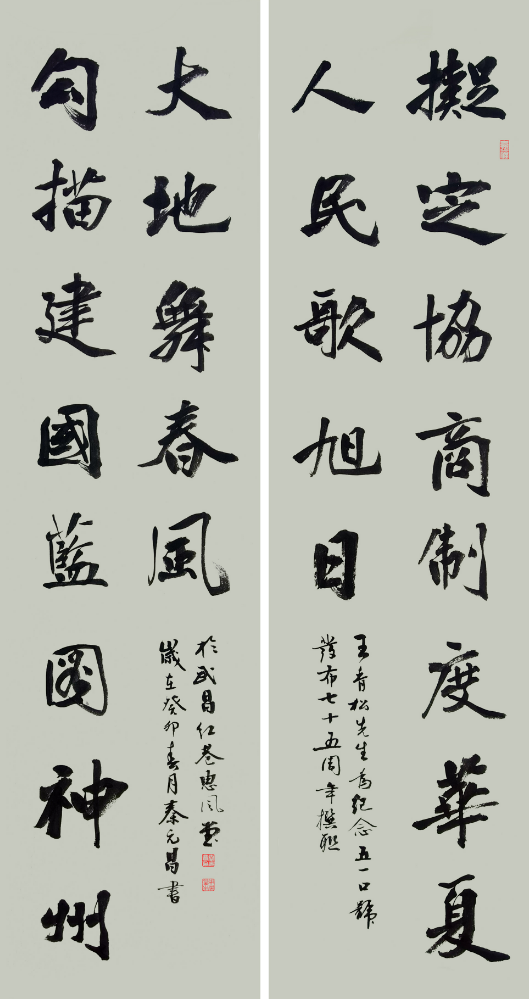 擬定協商制度華夏
人民歌旭日
王青松先生為紀念五一口號
發布七十五周年撰聯
勾描建國藍圖神州
大地舞春風
於武昌紅巷惠風堂
歲在癸卯春月秦元昌書